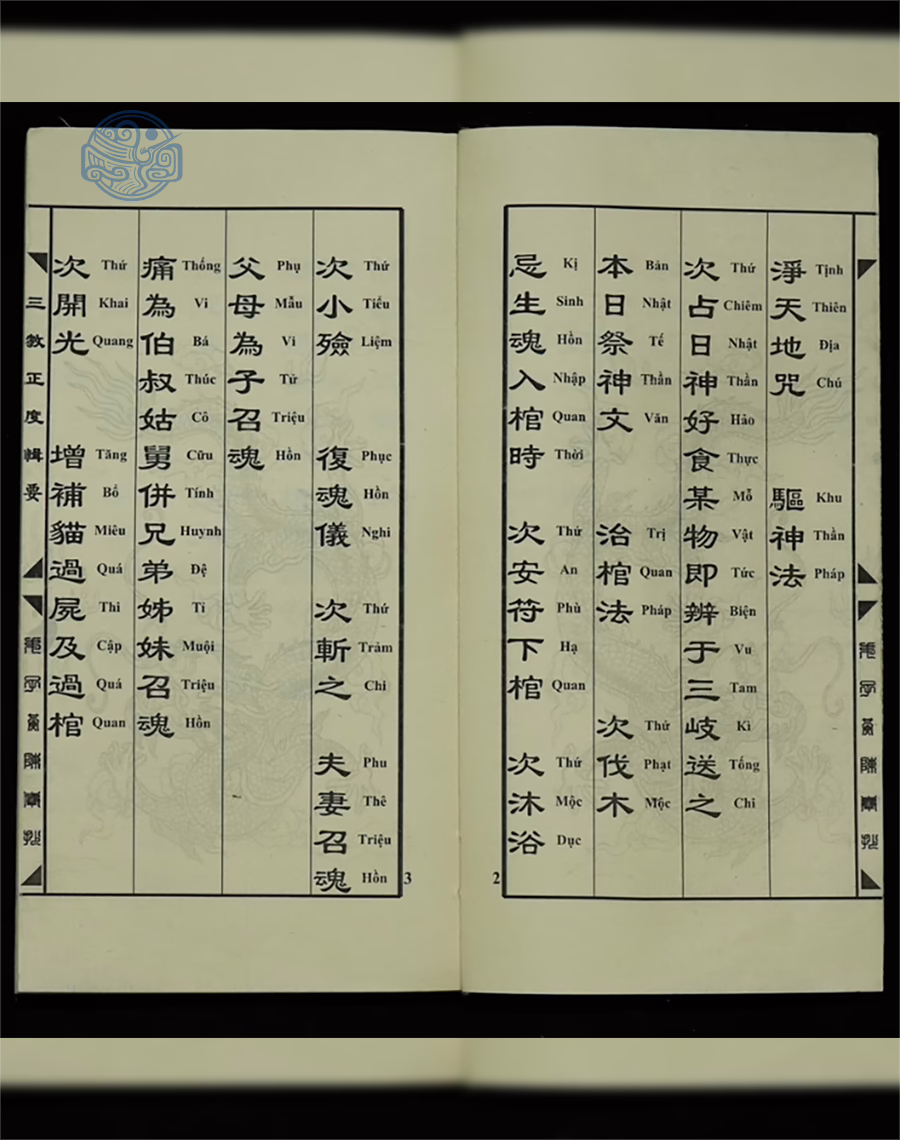 淨天地咒 驅神法
Tịnh Thiên Địa Chú Khu Thần Pháp
次占日神好食某物即辨于三岐送之
Thứ Chiêm Nhật Thần Hảo Thực Mỗ Vật Tức Biện Vu Tam Kì Tống Chi
本日祭神文 治棺法 次伐木
Bản Nhật Tế Thần Văn Trị Quan Pháp Thứ Phạt Mộc
忌生魂入棺時 次安符下棺 次沐浴
Kị Sinh Hồn Nhập Quan Thời Thứ An Phù Hạ Quan Thứ Mộc Dục
2
次小殮 復魂儀 次斬之 夫妻召魂
Thứ Tiểu Liệm Phục Hồn Nghi Thứ Trảm Chi Phu Thê Triệu Hồn
父母為子召魂
Phụ Mẫu Vi Tử Triệu Hồn
痛為伯叔姑舅併兄弟姊妹召魂
Thống Vi Bá Thúc Cô Cữu Tính Huynh Đệ Tỉ Muội Triệu Hồn
次開光 增補貓過屍及過棺
Thứ Khai Quang Tăng Bổ Miêu Quá Thi Cập Quá Quan
三教正度輯要
3